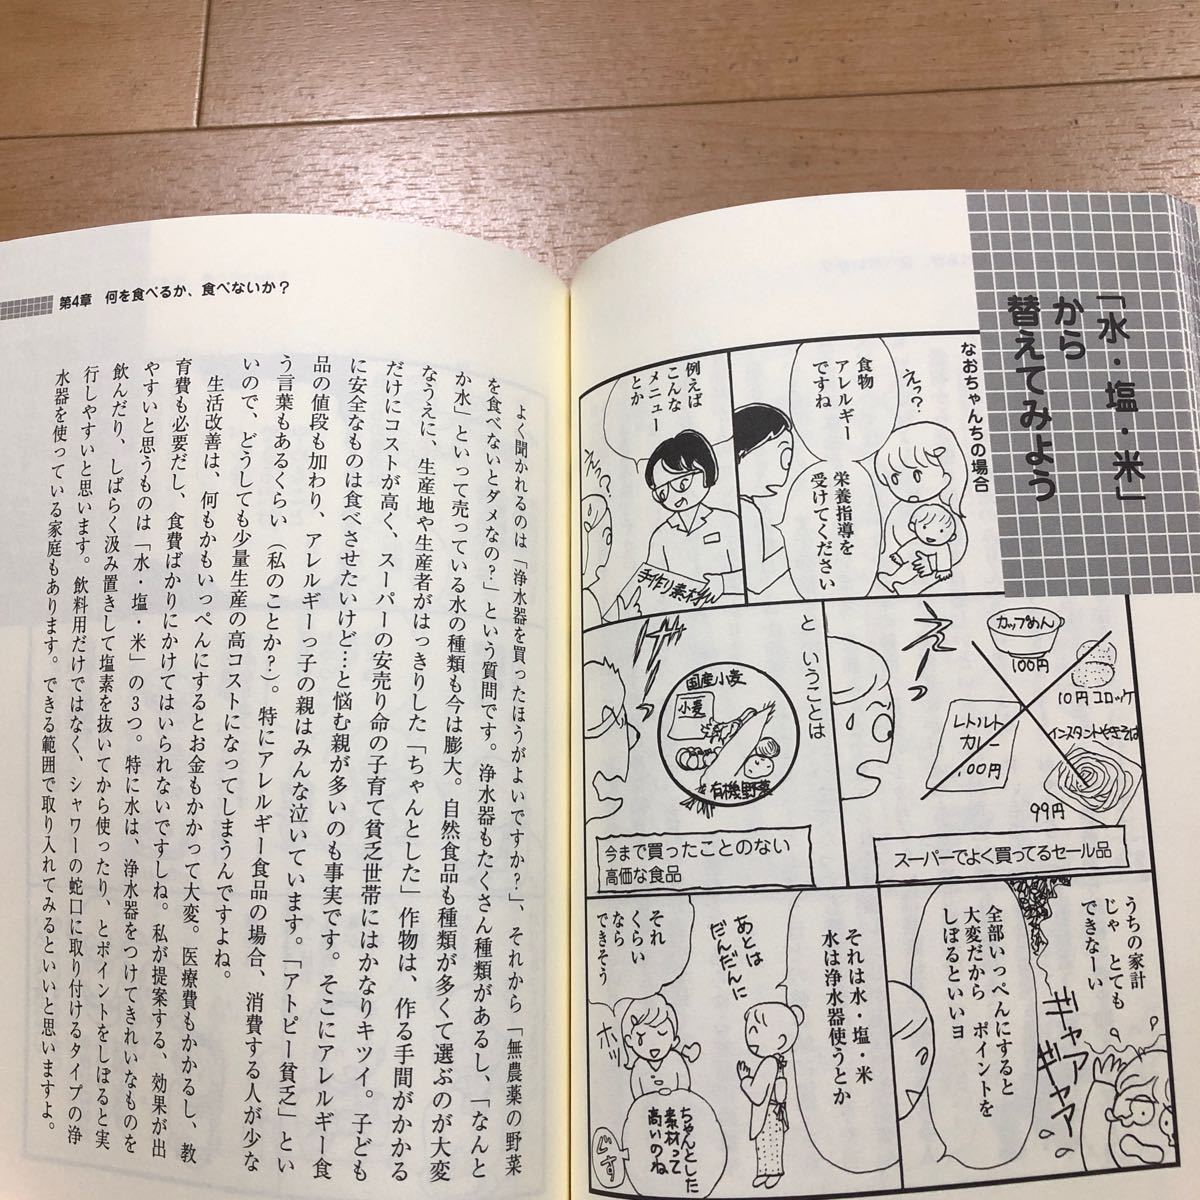 「水・塩・米」
から
替えてみよう
なおちゃんちの場合
えっ?
食物
アレルギー
ですね
栄養指導を
受けてください
例えば
こんな
メニュー
とか
手作り素材
カップめん
100円
10円コロッケ
レトルト
カレー
100円
インスタントやきそば
99円
スーパーでよく買ってるセール品
えーっ
と いうことは
国産小麦
小麦
有機野菜
今まで買ったことのない
高価な食品
うちの家計
じゃ とても
できなーい
ギャア
ギャア
全部いっぺんにすると
大変だから ポイントを
しぼるといいヨ
それは水・塩・米
水は浄水器使うとか
あとは
だんだんに
それ
くらい
なら
できそう
ホッ
ちゃんとした
素材って
高いのね
ぐす
第4章 何を食べるか、食べないか?
よく聞かれるのは「浄水器を買ったほうがよいですか?」、それから「無農薬の野菜
を食べないとダメなの?」という質問です。浄水器もたくさん種類があるし、「なんと
か水」といって売っている水の種類も今は膨大。自然食品も種類が多くて選ぶのが大変
なうえに、生産地や生産者がはっきりした「ちゃんとした」作物は、作る手間がかかる
だけにコストが高く、スーパーの安売り命の子育て貧乏世帯にはかなりキツイ。子ども
に安全なものは食べさせたいけど…と悩む親が多いのも事実です。そこにアレルギー食
品の値段も加わり、アレルギーっ子の親はみんな泣いています。「アトピー貧乏」とい
う言葉もあるくらい(私のことか?)。特にアレルギー食品の場合、消費する人が少な
いので、どうしても少量生産の高コストになってしまうんですよね。
生活改善は、何もかもいっぺんにするとお金もかかって大変。医療費もかかるし、教
育費も必要だし、食費ばかりにかけてはいられないですしね。私が提案する、効果が出
やすいと思うものは「水・塩・米」の3つ。特に水は、浄水器をつけてきれいなものを
飲んだり、しばらく汲み置きして塩素を抜いてから使ったり、とポイントをしぼると実
行しやすいと思います。飲料用だけではなく、シャワーの蛇口に取り付けるタイプの浄
水器を使っている家庭もあります。できる範囲で取り入れてみるといいと思いますよ。